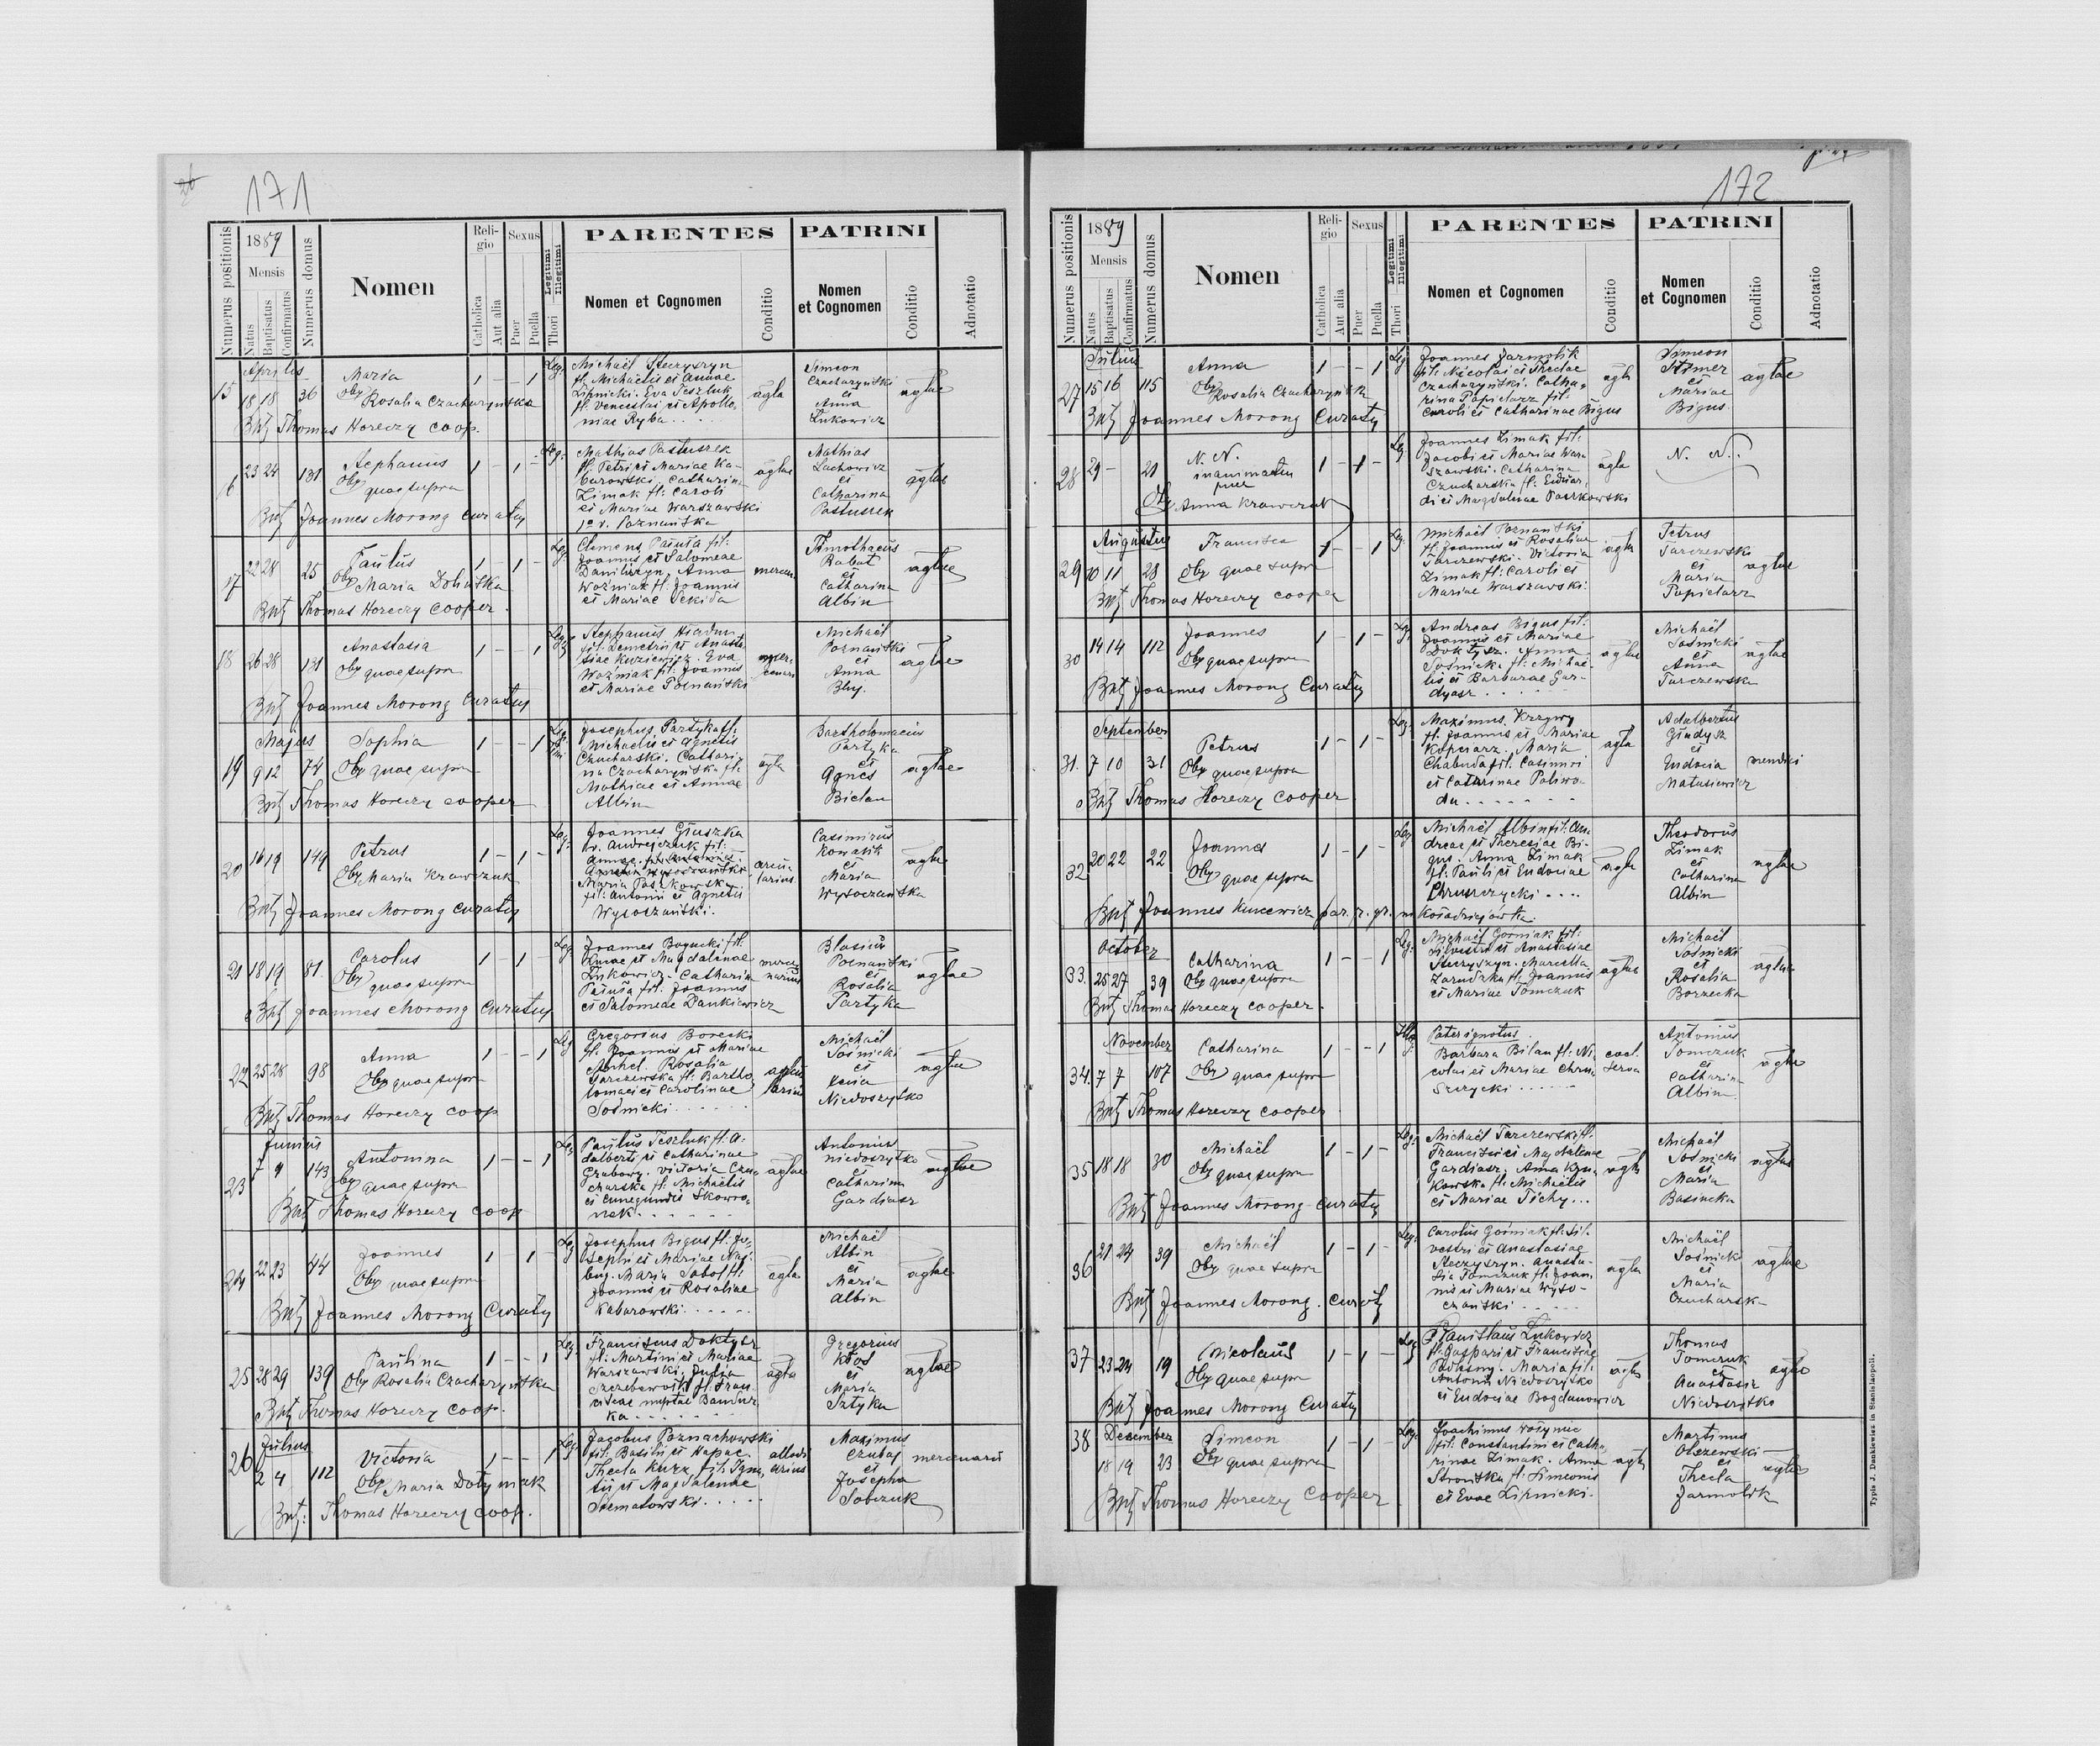 171
Numerus positionis
1889
Mensis
Natus
Baptisatus
Confirmatus
Numerus domus
Nomen
Religio
Catholica
Aut alia
Sexus
Puer
Puella
Legitimi
Illegitimi
Thori
PARENTES
Nomen et Cognomen
Conditio
PATRINI
Nomen
et Cognomen
Conditio
Adnotatio
Aprilis
15 18 18 36 Maria 1 - - 1 Leg:
Obx Rosalia Czacharyńska
Bptz Thomas Horeczy coop.
Michaël Steczyszyn
fl. Michaëlis et Annae
Lipnicki. Eva Teszluk
fl. Venceslai et Apollo-
niae Ryba
agla
Simeon
Czacharyński
et
Anna
Łukowicz
aglae
16 23 24 131 Stephanus 1 - 1 - Leg:
Obx quae supra
Bptz Joannes Morong curatus
Mathias Pastuszek
fl. Petri et Mariae Ka-
barowski. Catharina
Zimak fl: Caroli
et Mariae Warszawski
1o v. Poznańska
aglae
Mathias
Lachowicz
et
Catharina
Pastuszek
aglae
17 22 28 25 Paulus 1 - 1 - Leg:
Obx Maria Dolińska
Bptz Thomas Horeczy cooper.
Clemens Patuła fil:
Joannis et Salomeae
Daniliszyn. Anna
Woźniak fl. Joannis
et Mariae
Timothaeus
Rabat
et
Catharina
Albin
aglae
18 26 28 131 Anastasia 1 - - 1 Leg:
Obx quae supra
Bptz Joannes Morong Curatus
Stephanus
fil. Demetrii et Anasta-
siae Kuziewicz. Eva
Woźniak fil: Joannis
et Mariae Poznański
Michaël
Poznański
et
Anna
Bluj.
aglae
Majus
19 9 12 74 Sophia 1 - - 1
Obx quae supra
Bptz Thomas Horeczy cooper
Josephus Partyka fl.
Michaëlis et Agnetis
Czucharski. Cathari-
na Czacharyńska fl.
Mathiae et Annae
Albin
agla
Bartholomaeus
Partyka
et
Agnes
Bielan
aglae
20 16 19 149 Petrus 1 - 1 - Leg:
Obx Maria Krawczuk
Bptz Joannes Morong curatus
Joannes Głuszka
v. Andrejczuk fil:
Annae
Maria Paszkowska
fil: Antonii et Agnetis
Wysoczański.
Casimirus
Kowalik
et
Maria
Wysoczańska
agla
21 18 19 81 Carolus 1 - 1 - Leg:
Obx quae supra
Bptz Joannes Morong Curatus
Joannes Bogucki fil:
et Magdalenae
Łukowicz. Catharina
Patuła fil. Joannis
et Salomeae Dankiewicz
mercenarius
Blasius
Poznański
et
Rosalia
Partyka
aglae
22 25 28 98 Anna 1 - - 1 Leg
Obx quae supra
Bptz Thomas Horeczy coop
Gregorius Borecki
fl. Joannis et Mariae
Rosalia
Tarczewska fl. Bartho-
lomaei et Carolinae
Sośnicki
Michaël
Sośnicki
et
Xenia
Niedoszytko
aglae
Junius
23 7 9 143 Antonina 1 - - 1 Leg
Obx quae supra
Bptz Thomas Horeczy coop
Paulus Teszluk fl. A-
dalberti et Catharinae
Grabowy. Victoria Czu-
charska fl. Michaëlis
et Cunegundis Skowro-
nek
aglae
Antonius
Niedoszytko
et
Catharina
Gardiasz
aglae
24 22 23 44 Joannes 1 - 1 - Leg
Obx quae supra
Bptz Joannes Morong Curatus
Josephus Bigus fl. Jo-
sephi et Mariae
Maria Sobol fl.
Joannis et Rosaliae
Kabarowski
agla
Michaël
Albin
et
Maria
Albin
aglae
25 28 29 139 Paulina 1 - - 1 Leg:
Obx Rosalia Czacharyńska
Bptz Thomas Horeczy Coop.
Franciscus Doktysz
fl. Martini et Mariae
Warszawski. Julia
fl. Fran-
ciscae nuptae Bandur-
ka
agla
Gregorius
Kłos
et
Maria
Sztyka
aglae
26 Julius
2 4 112 Victoria 1 - - 1 Leg
Obx Maria Dołymak
Bptz: Thomas Horeczy Coop.
Jacobus Poznachowski
fil. Basilii et
Thecla Kuzx fil: Igna-
tii et Magdalenae
Szematowski
Maximus
Czubaj
et
Josepha
Sobczuk
mercenarii
172
Numerus positionis
1889
Mensis
Natus
Baptisatus
Confirmatus
Numerus domus
Nomen
Religio
Catholica
Aut alia
Sexus
Puer
Puella
Legitimi
Illegitimi
Thori
PARENTES
Nomen et Cognomen
Conditio
PATRINI
Nomen
et Cognomen
Conditio
Adnotatio
Julius
27 15 16 115 Anna 1 - - 1 Leg
Obx Rosalia Czacharyńska
Bptz Joannes Morong Curatus
Joannes Jarmolik
fil. Nicolai et Theclae
Czacharyński. Catha-
rina Papielarz fil:
Caroli et Catharinae Bigus
agla
Simeon
et
Mariae
Bigus.
aglae
28 29 - 21 N. N. 1 - 1 - Leg
inanimatus
puer
Obx Anna Krawczuk
Joannes Zimak fil:
Jacobi et Mariae War-
szawski. Catharina
Czucharska fl: Eduar-
di et Magdalenae Paszkowski
agla
N. N.
Augustus
29 10 11 28 Francisca 1 - - 1 Leg.
Obx quae supra
Bptz Thomas Horeczy cooper
Michaël Poznański
fl. Joannis et Rosaliae
Tarczewski. Victoria
Zimak fl: Caroli et
Mariae Warszawski:
agla
Petrus
Tarczewski
et
Maria
Papielarz
aglae
30 14 14 112 Joannes 1 - 1 - Leg
Obx quae supra
Bptz Joannes Morong Curatus
Andreas Bigus fil:
Joannis et Mariae
Doktysz. Anna
Sośnicka fl: Michaë-
lis et Barbarae Gar-
dyasz
aglae
Michaël
Sośnicki
et
Anna
Tarczewska
aglae
September
31. 7 10 31 Petrus 1 - 1 - Leg:
Obx quae supra
Bptz Thomas Horeczy cooper
Maximus Krzywy
fl. Joannis et Mariae
Kopciarz. Maria
Chabuda fil. Casimiri
et Catharinae Paliwo-
da
agla
Adalbertus
Gładysz
et
Eudocia
Matusiewicz
mendici
32 20 22 22 Joannes 1 - 1 - Leg
Obx quae supra
Bptz Joannes Kuncewicz par. r. gr. in Kołodziejówka.
Michaël Albin fil: An-
dreae et Theresiae Bi-
gus. Anna Zimak
fl. Pauli et Eudociae
Chruszczycki
agla
Theodorus
Zimak
et
Catharina
Albin
aglae
October
33. 25 27 39 Catharina 1 - - 1 Leg:
Obx quae supra
Bptz Thomas Horeczy cooper.
Michaël Górniak fil:
Silvestri et Anastasiae
Steczyszyn. Marcella
Zarudzka fl. Joannis
et Mariae Tomczuk
aglae
Michaël
Sośnicki
et
Rosalia
Borzecka
aglae
November
34. 7 7 107 Catharina 1 - - 1 Illeg:
Obx quae supra
Bptz Thomas Horeczy cooper
Pater ignotus.
Barbara Bilan fl: Ni-
colai et Mariae Chru-
szczycki
Antonius
Tomczuk
et
Catharina
Albin.
aglae
35 18 18 30 Michaël 1 - 1 - Leg:
Obx quae supra
Bptz Joannes Morong curatus
Michaël Tarczewski fl.
Francisci et Magdalenae
Gardiasz. Anna
fl. Michaëlis
et Mariae Tichy
agla
Michaël
Sośnicki
et
Maria
Basińska
aglae
36 21 24 39 Michaël 1 - 1 - Leg:
Obx quae supra
Bptz Joannes Morong. curatus
Carolus Górniak fl: Sil-
vestri et Anastasiae
Steczyszyn. Anasta-
sia Tomczuk fl. Joan-
nis et Mariae Wyso-
czański
agla
Michaël
Sośnicki
et
Maria
Czucharska
aglae
37 23 24 19 Nicolaus 1 - 1 - Leg
Obx quae supra
Bptz Joannes Morong Curatus
Stanislaus Łukowicz
fl. Gaspari et Franciscae
Maria fil:
Antonii Niedoszytko
et Eudociae Bogdanowicz
agla
Thomas
Tomczuk
et
Anastasia
Niedoszytko
aglae
38 December
18 19 23 Simeon 1 - 1 - Leg:
Obx quae supra
Bptz Thomas Horeczy Cooper.
Joachimus Wołyniec
fil: Constantini et Catha-
rinae Zimak. Anna
Strońska fl: Simeonis
et Evae Lipnicki.
agla
Martinus
Olszewski
et
Thecla
Jarmolik
aglae
Typis J. Dankiewicz in Stanislaopoli.